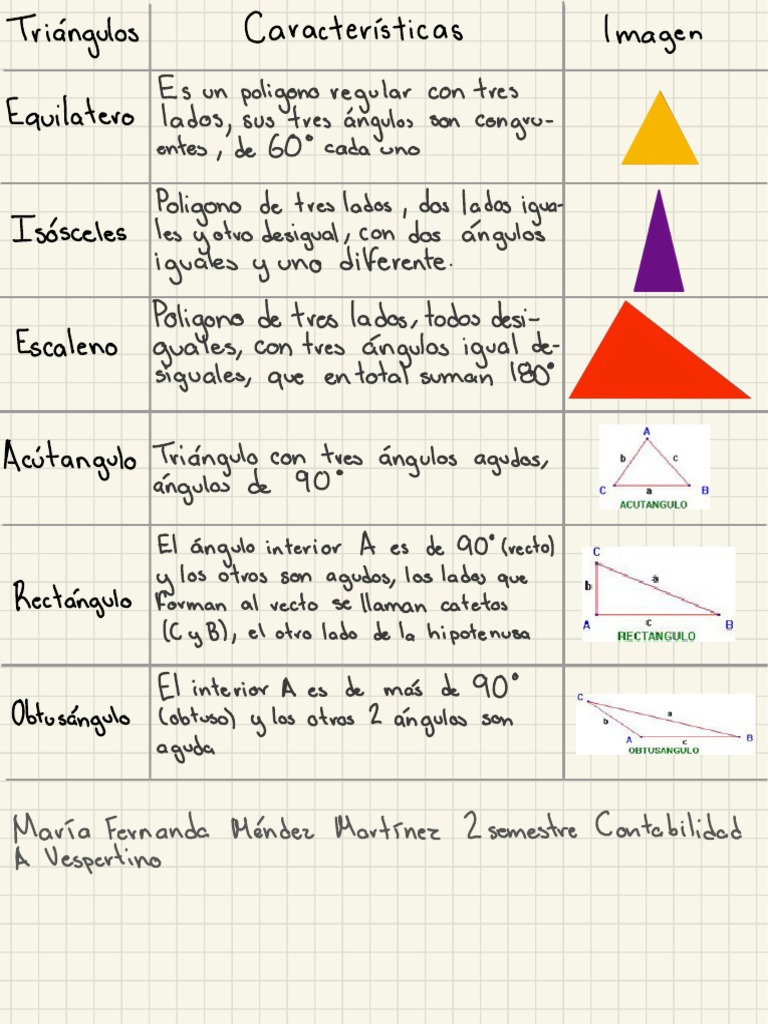 Triángulos Características Imagen
Equilatero
Es un poligono regular con tres
lados, sus tres ángulos son congru-
entes, de 60° cada uno
Isósceles
Poligono de tres lados, dos lados igua-
les y otro desigual, con dos ángulos
iguales y uno diferente.
Escaleno
Poligono de tres lados, todos desi-
guales, con tres ángulos igual de-
siguales, que en total suman 180°
Acútangulo
Triángulo con tres ángulos agudos,
ángulos de 90°
A
b c
C a B
ACUTANGULO
Rectángulo
El ángulo interior A es de 90° (recto)
y los otros son agudos, los lados que
forman al recto se llaman catetos
(C y B), el otro lado de la hipotenusa
C
b a
A c B
RECTANGULO
Obtusángulo
El interior A es de más de 90°
(obtuso) y los otros 2 ángulos son
aguda
C a
b
A c B
OBTUSANGULO
María Fernanda Méndez Martínez 2 semestre Contabilidad
A Vespertino